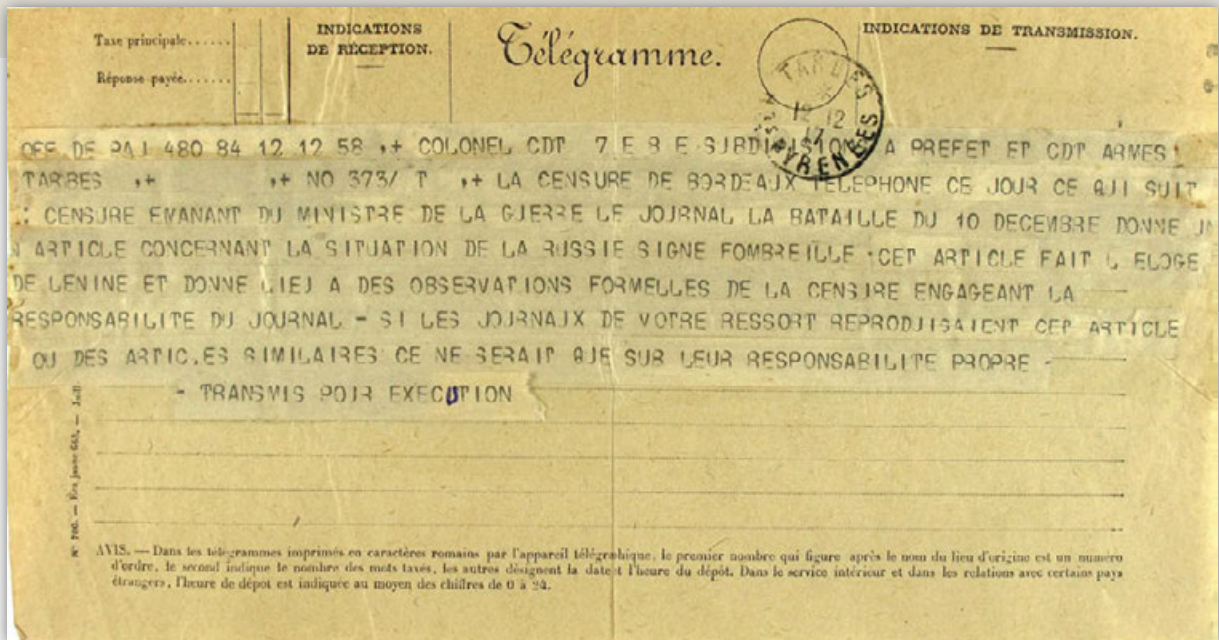 Taxe principale......
Réponse payée.......
INDICATIONS
DE RÉCEPTION.
Télégramme.
INDICATIONS DE TRANSMISSION.
TARBES
12 12
17
PYRENEES
OFF DE PAU 480 84 12 12 58 ,+ COLONEL CDT 7 E 8 E SUBDIVISIONS A PREFET ET CDT ARMES
TARBES ,+ ,+ NO 373/ T ,+ LA CENSURE DE BORDEAUX TELEPHONE CE JOUR CE QUI SUIT
: CENSURE EMANANT DU MINISTRE DE LA GUERRE LE JOURNAL LA BATAILLE DU 10 DECEMBRE DONNE U
N ARTICLE CONCERNANT LA SITUATION DE LA RUSSIE SIGNE FOMBREILLE . CET ARTICLE FAIT L ELOGE
DE LENINE ET DONNE LIEU A DES OBSERVATIONS FORMELLES DE LA CENSURE ENGAGEANT LA
RESPONSABILITE DU JOURNAL - SI LES JOURNAUX DE VOTRE RESSORT REPRODUISAIENT CET ARTICLE
OU DES ARTICLES SIMILAIRES CE NE SERAIT QUE SUR LEUR RESPONSABILITE PROPRE -
- TRANSMIS POUR EXECUTION
AVIS. — Dans les télégrammes imprimés en caractères romains par l'appareil télégraphique, le premier nombre qui figure après le nom du lieu d'origine est un numéro
d'ordre, le second indique le nombre des mots taxés, les autres désignent la date et l'heure du dépôt. Dans le service intérieur et dans les relations avec certains pays
étrangers, l'heure de dépôt est indiquée au moyen des chiffres de 0 à 24.